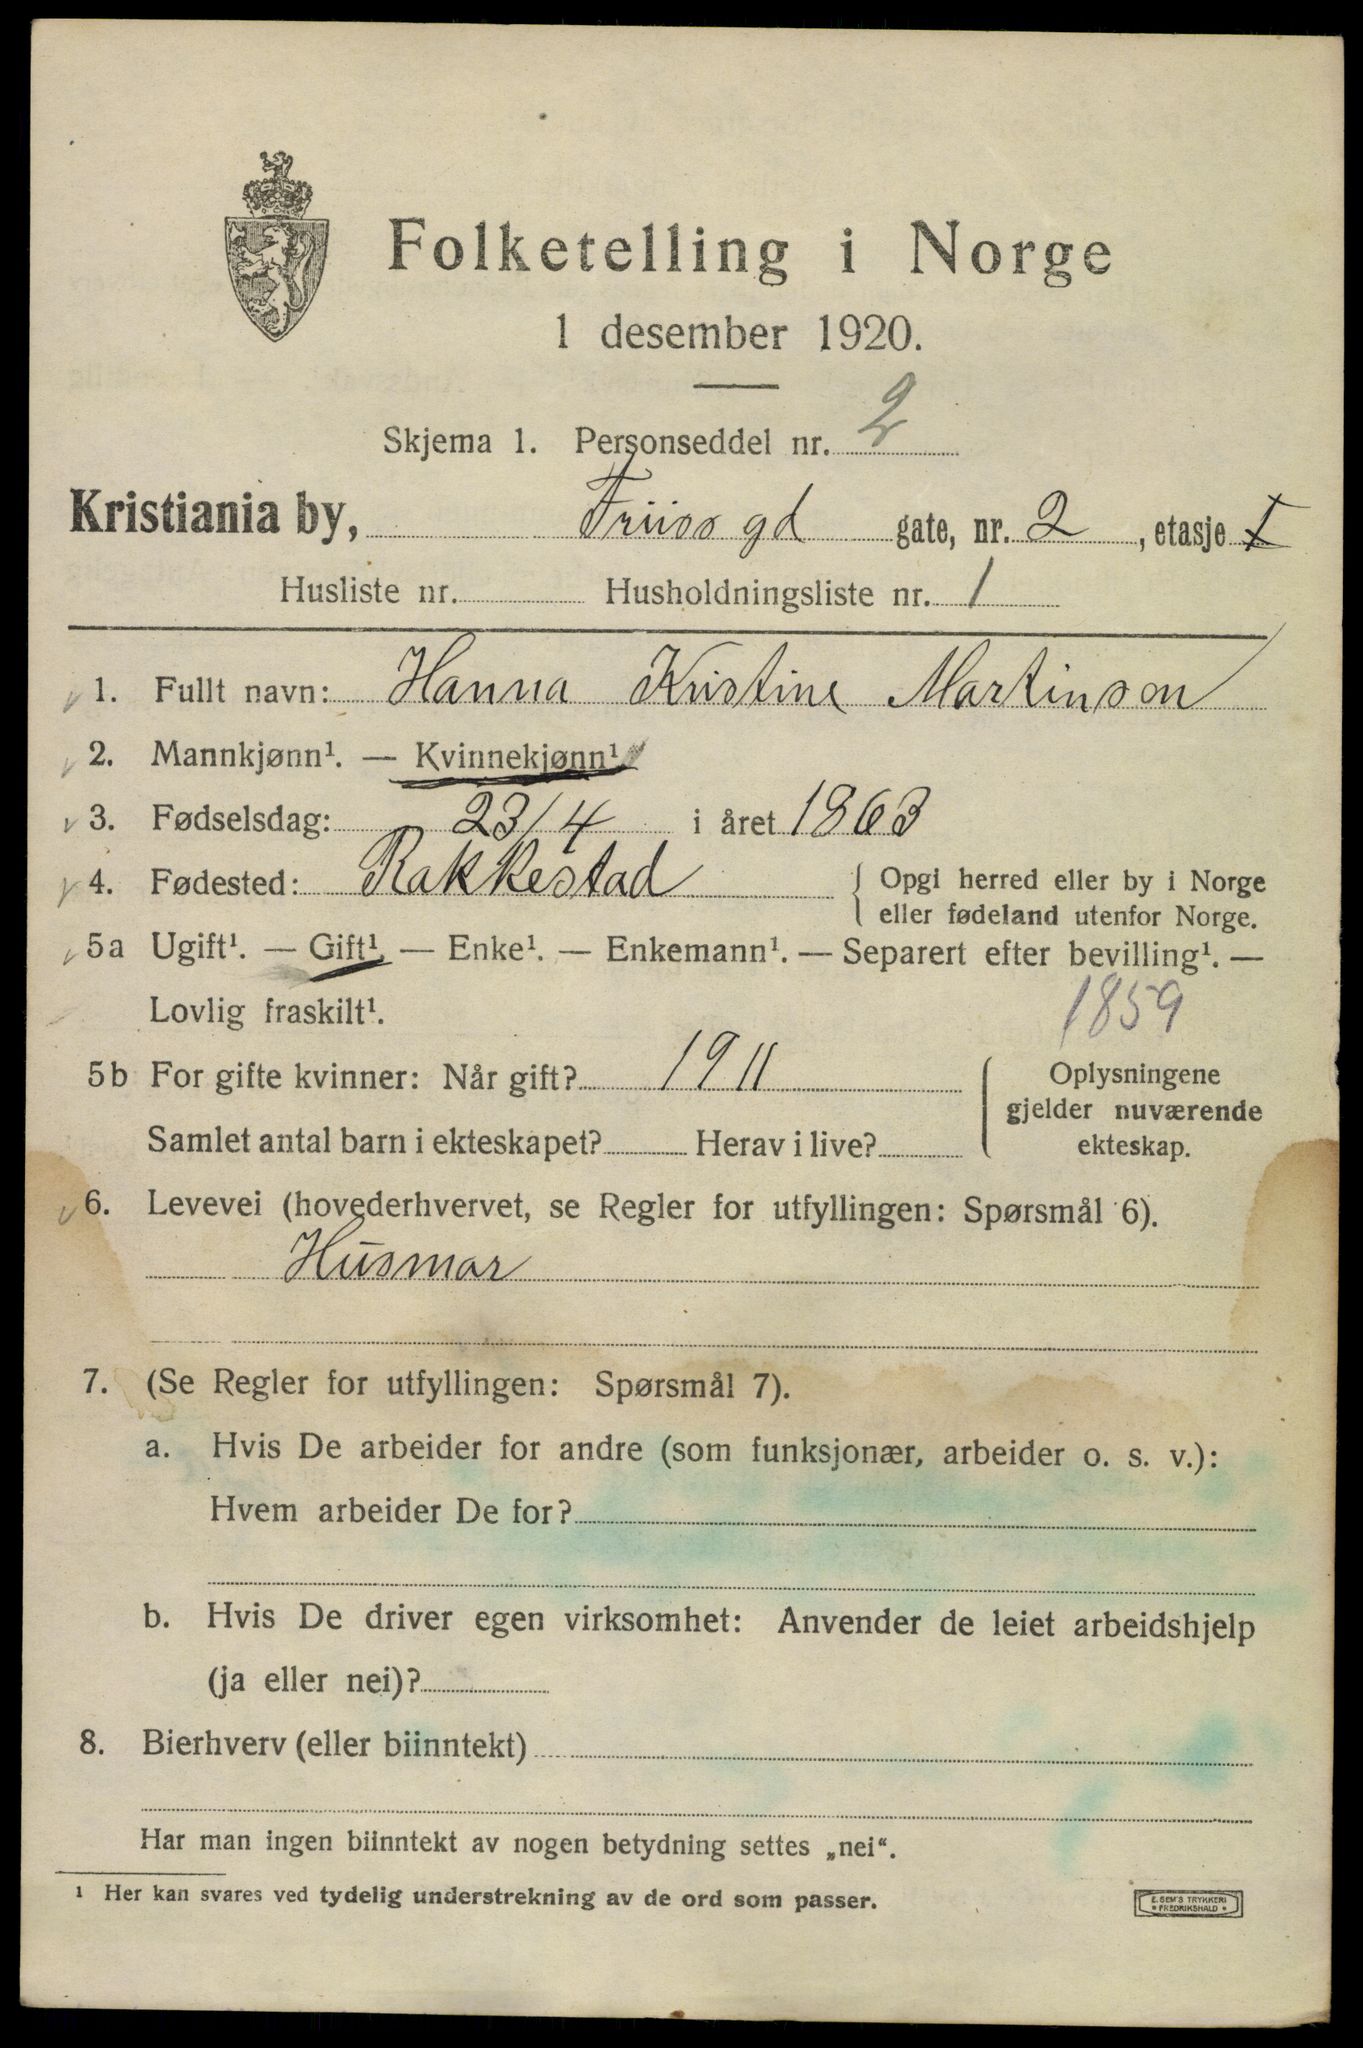 Folketelling i Norge
1 desember 1920.
Skjema 1. Personseddel nr. 2
Kristiania by, Friiss gd gate, nr. 2, etasje I
Husliste nr. Husholdningsliste nr. 1
1. Fullt navn: Hanna Kristine Martinson
2. Mannkjønn¹. — Kvinnekjønn¹
3. Fødselsdag: 23/4 i året 1863
4. Fødested: Rakkestad { Opgi herred eller by i Norge
eller fødeland utenfor Norge.
5a Ugift¹. — Gift¹. — Enke¹. — Enkemann¹. — Separert efter bevilling¹. —
Lovlig fraskilt¹. 1859
5b For gifte kvinner: Når gift? 1911 { Oplysningene
gjelder nuværende
Samlet antal barn i ekteskapet? Herav i live? ekteskap.
6. Levevei (hovederhvervet, se Regler for utfyllingen: Spørsmål 6).
Husmor
7. (Se Regler for utfyllingen: Spørsmål 7).
a. Hvis De arbeider for andre (som funksjonær, arbeider o. s. v.):
Hvem arbeider De for?
b. Hvis De driver egen virksomhet: Anvender de leiet arbeidshjelp
(ja eller nei)?
8. Bierhverv (eller biinntekt)
Har man ingen biinntekt av nogen betydning settes „nei“.
¹ Her kan svares ved tydelig understrekning av de ord som passer.
E. SEM'S TRYKKERI
* FREDRIKSHALD *